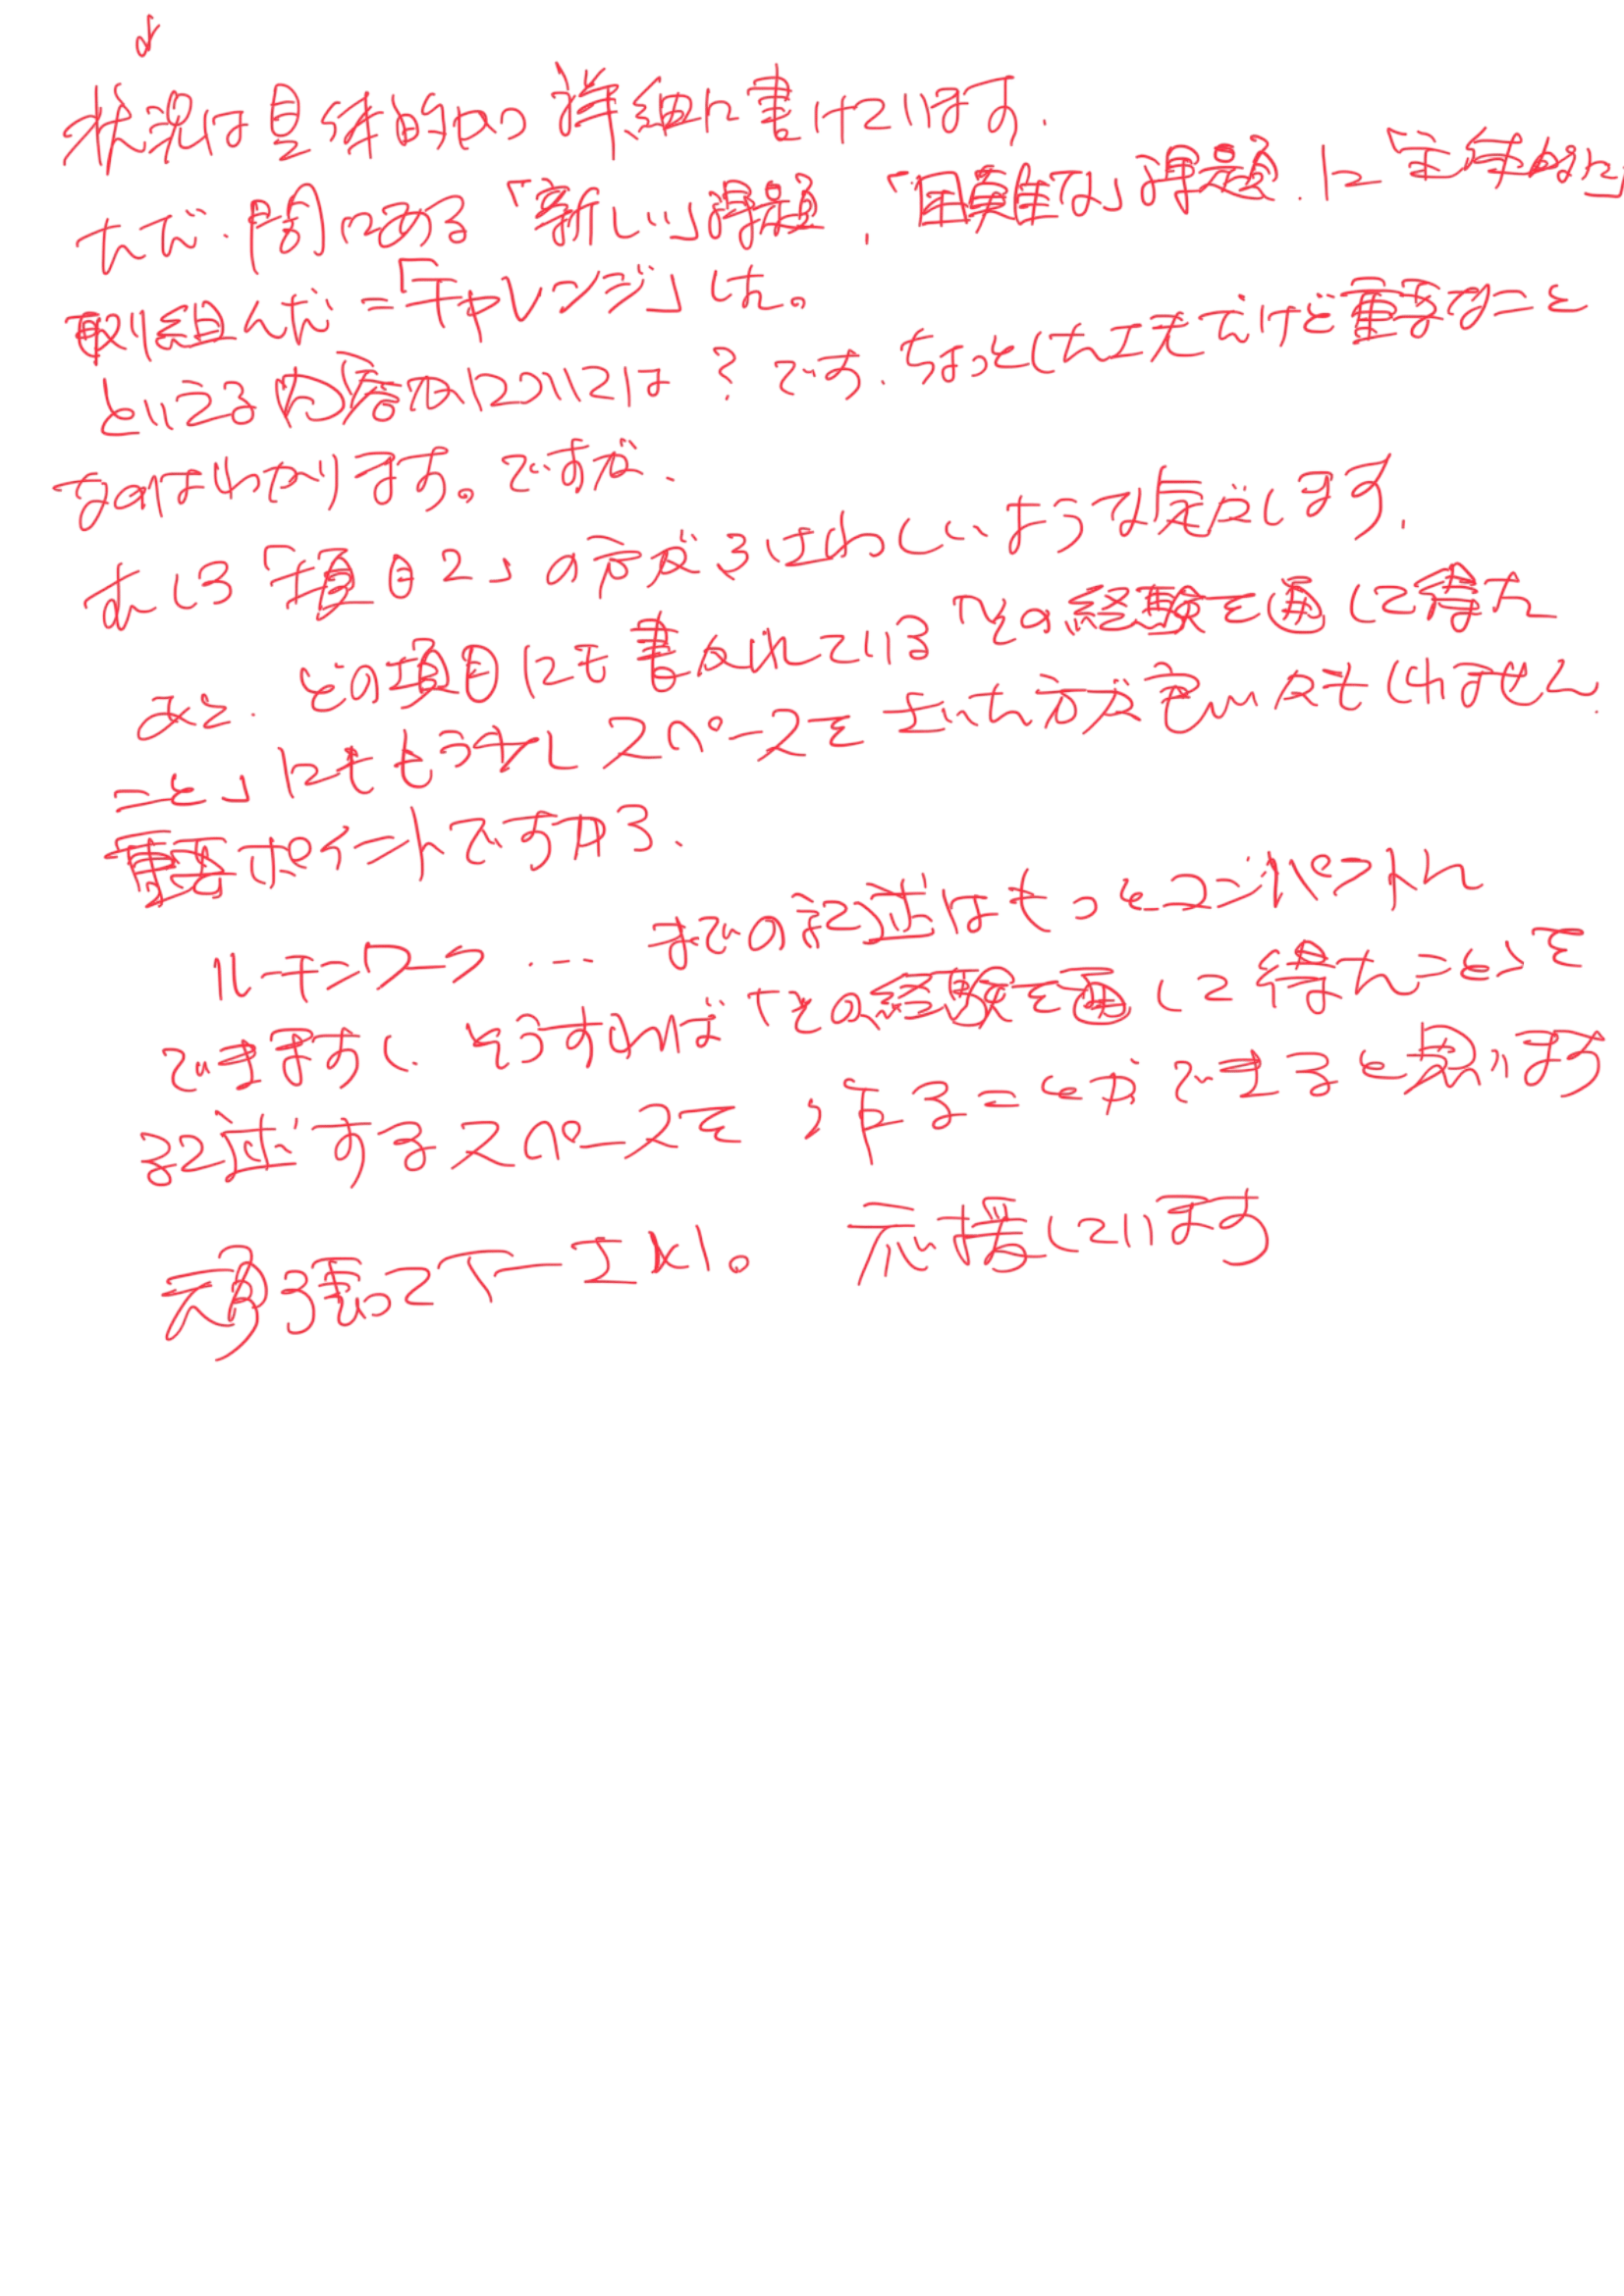 状況は具体的かつ詳細に書けています.
ただ.問である「新しい課題、「困難な」課題.に「主体的に
取り組んだ=「チャレンジ」は。
といえる内容かについては?です.ちょっとした工夫ですけど重要なこと
なのはわかります。ですが、
むしろ「項目2」の方がふさわしいような気がします.
あと.どの項目にも書かれている「その経験を通して得た
こと」にももう少しスペースを とった方が良いかもしれません.
重要ポイントですから.
ルーチンワーク ‥‥ までの記述はもっとコンパクトに
できますし.そうすれば「その経験を通して得たこと」を
記述するスペースを 作ることができると思います
頑張って下さい。 応援しています